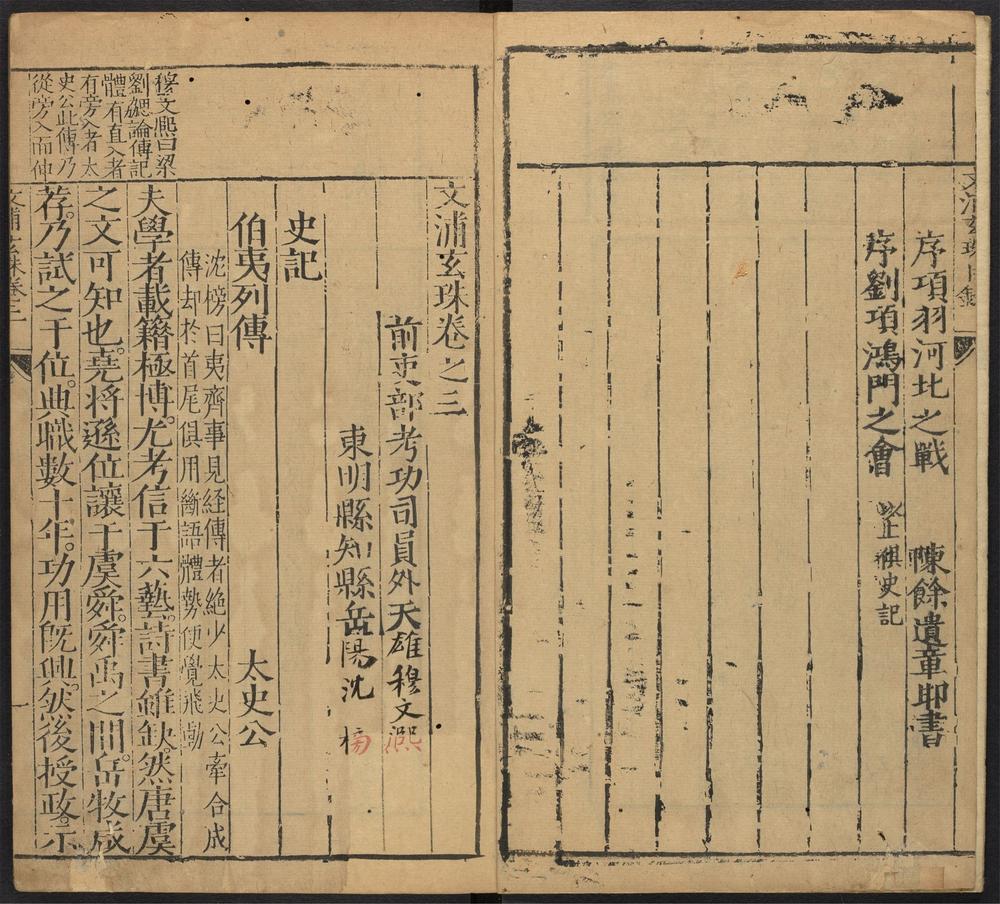 文浦玄珠目錄
序項羽河北之戰 陳餘遺章邯書
序劉項鴻門之會 以上俱史記
文浦玄珠卷之三
前吏部考功司員外天雄穆文熙
東明縣知縣岳陽沈 榜
史記
伯夷列傳 太史公
沈榜曰夷齊事見經傳者絕少太史公牽合成
傳却於首尾俱用斷語體勢便覺飛動
夫學者載籍極博尤考信于六藝詩書雖缺然唐虞
之文可知也堯將遜位讓于虞舜舜禹之間岳牧咸
荐乃試之于位典職數十年功用既興然後授政示
穆文熈曰梁
劉勰論傳記
體有直入者
有旁入者太
史公此傳乃
從旁入而伸
文浦玄珠卷三
一